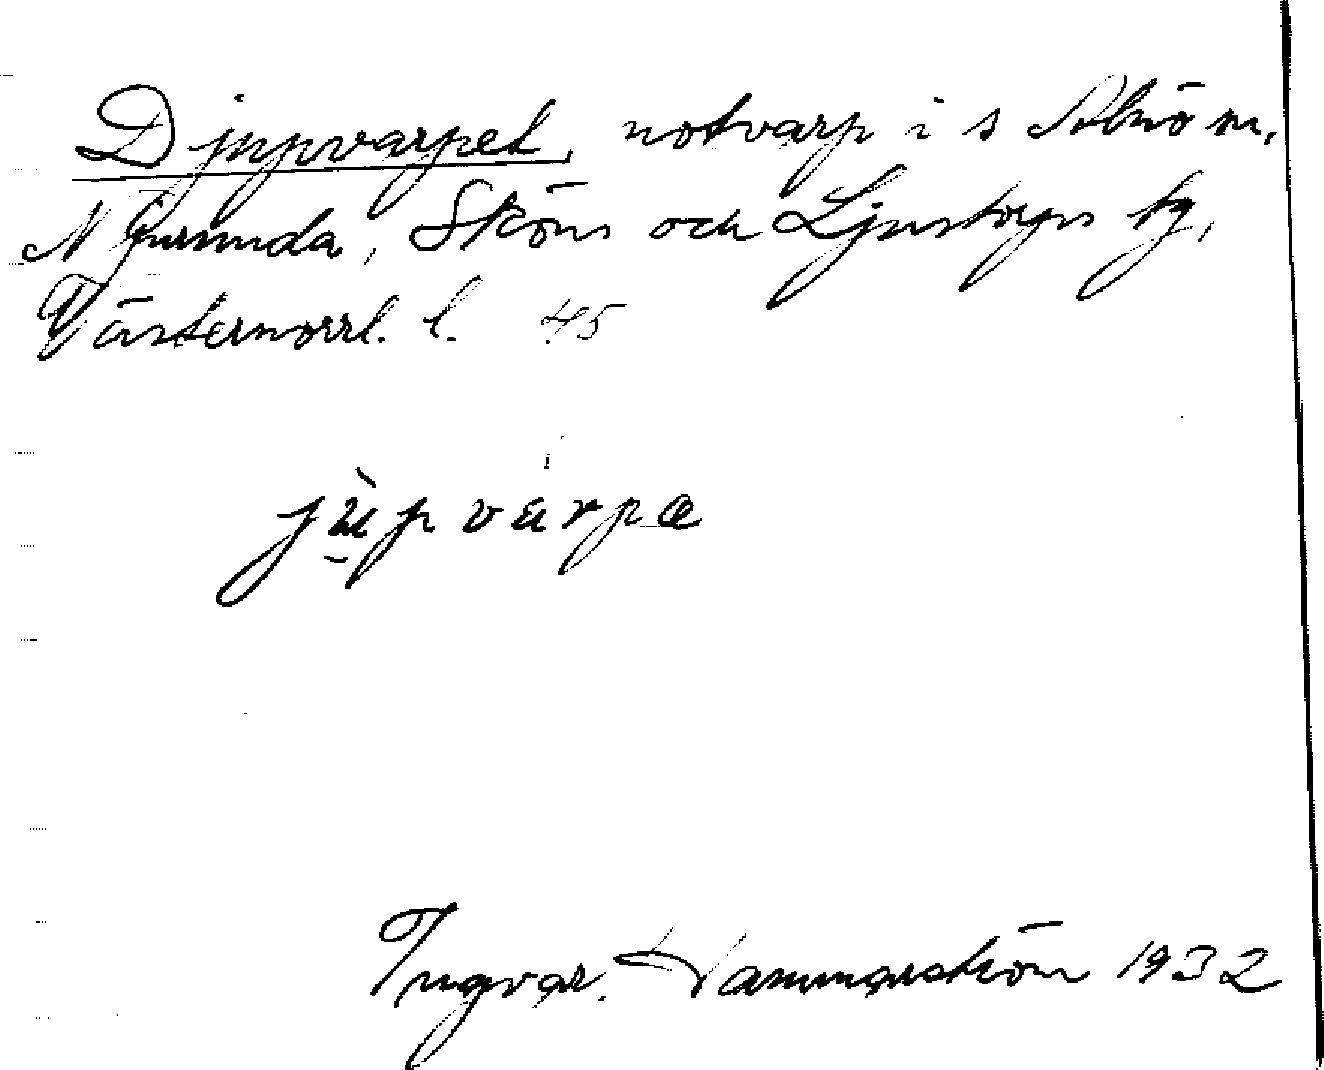 Djupvarpet, notvarp i s Alnö m.
Njurunda, Sköns och Ljustorps tg,
Västernorrl. l. 45
jùpvárpa
Ingvar Hammarström 1932